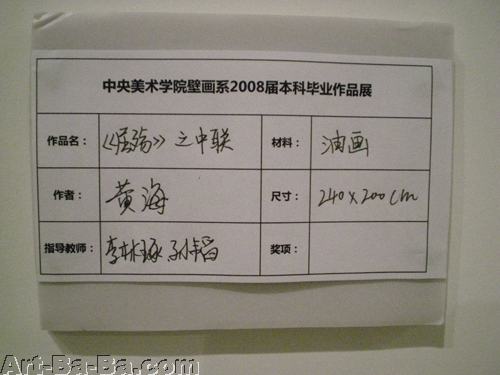 中央美术学院壁画系2008届本科毕业作品展
作品名： 《 》之中联 材料： 油画
作者： 黄海 尺寸： 240×200cm
指导教师： 李林琢 孙韬 奖项：
Art-Ba-Ba.com